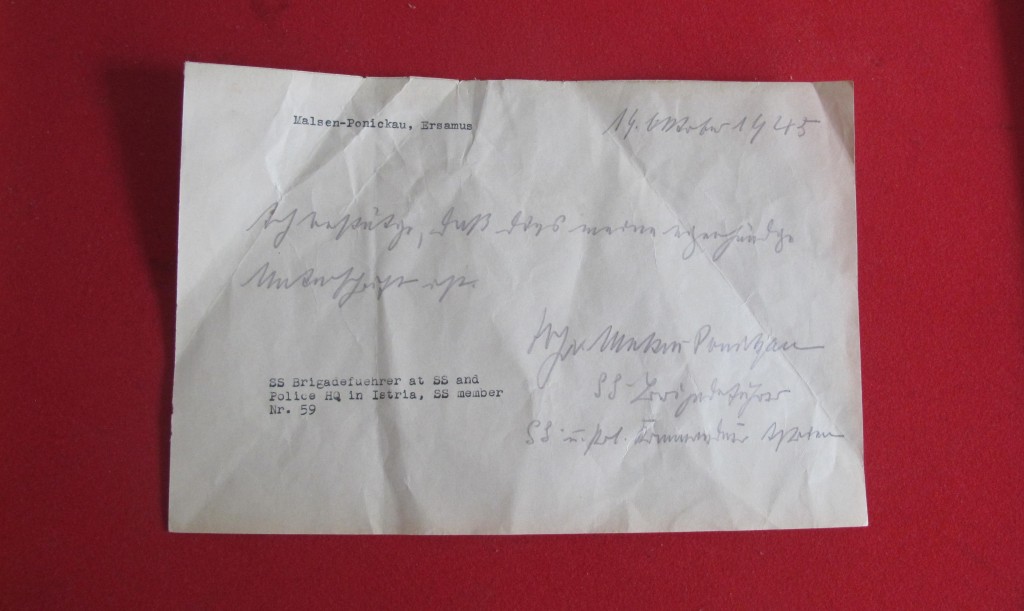 Malsen-Ponickau, Ersamus
19. Oktober 1945
Ich bestätige, daß dies meine eigenhändige
Unterschrift ist.
Frhr Malsen Ponickau
SS Brigadefuehrer at SS and
Police HQ in Istria, SS member
Nr. 59
SS-Brigadeführer
SS u. Pol. Kommandeur Istrien